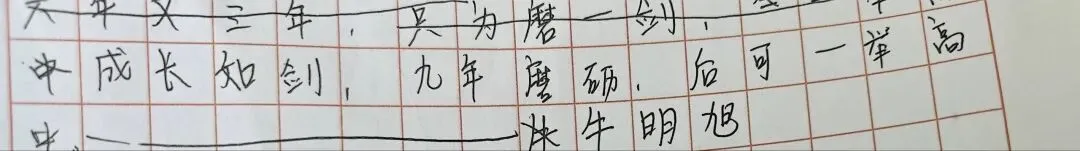 六年又三年，只为磨一剑，
中成长如剑，九年磨砺，后可一举高
中。——牛明旭